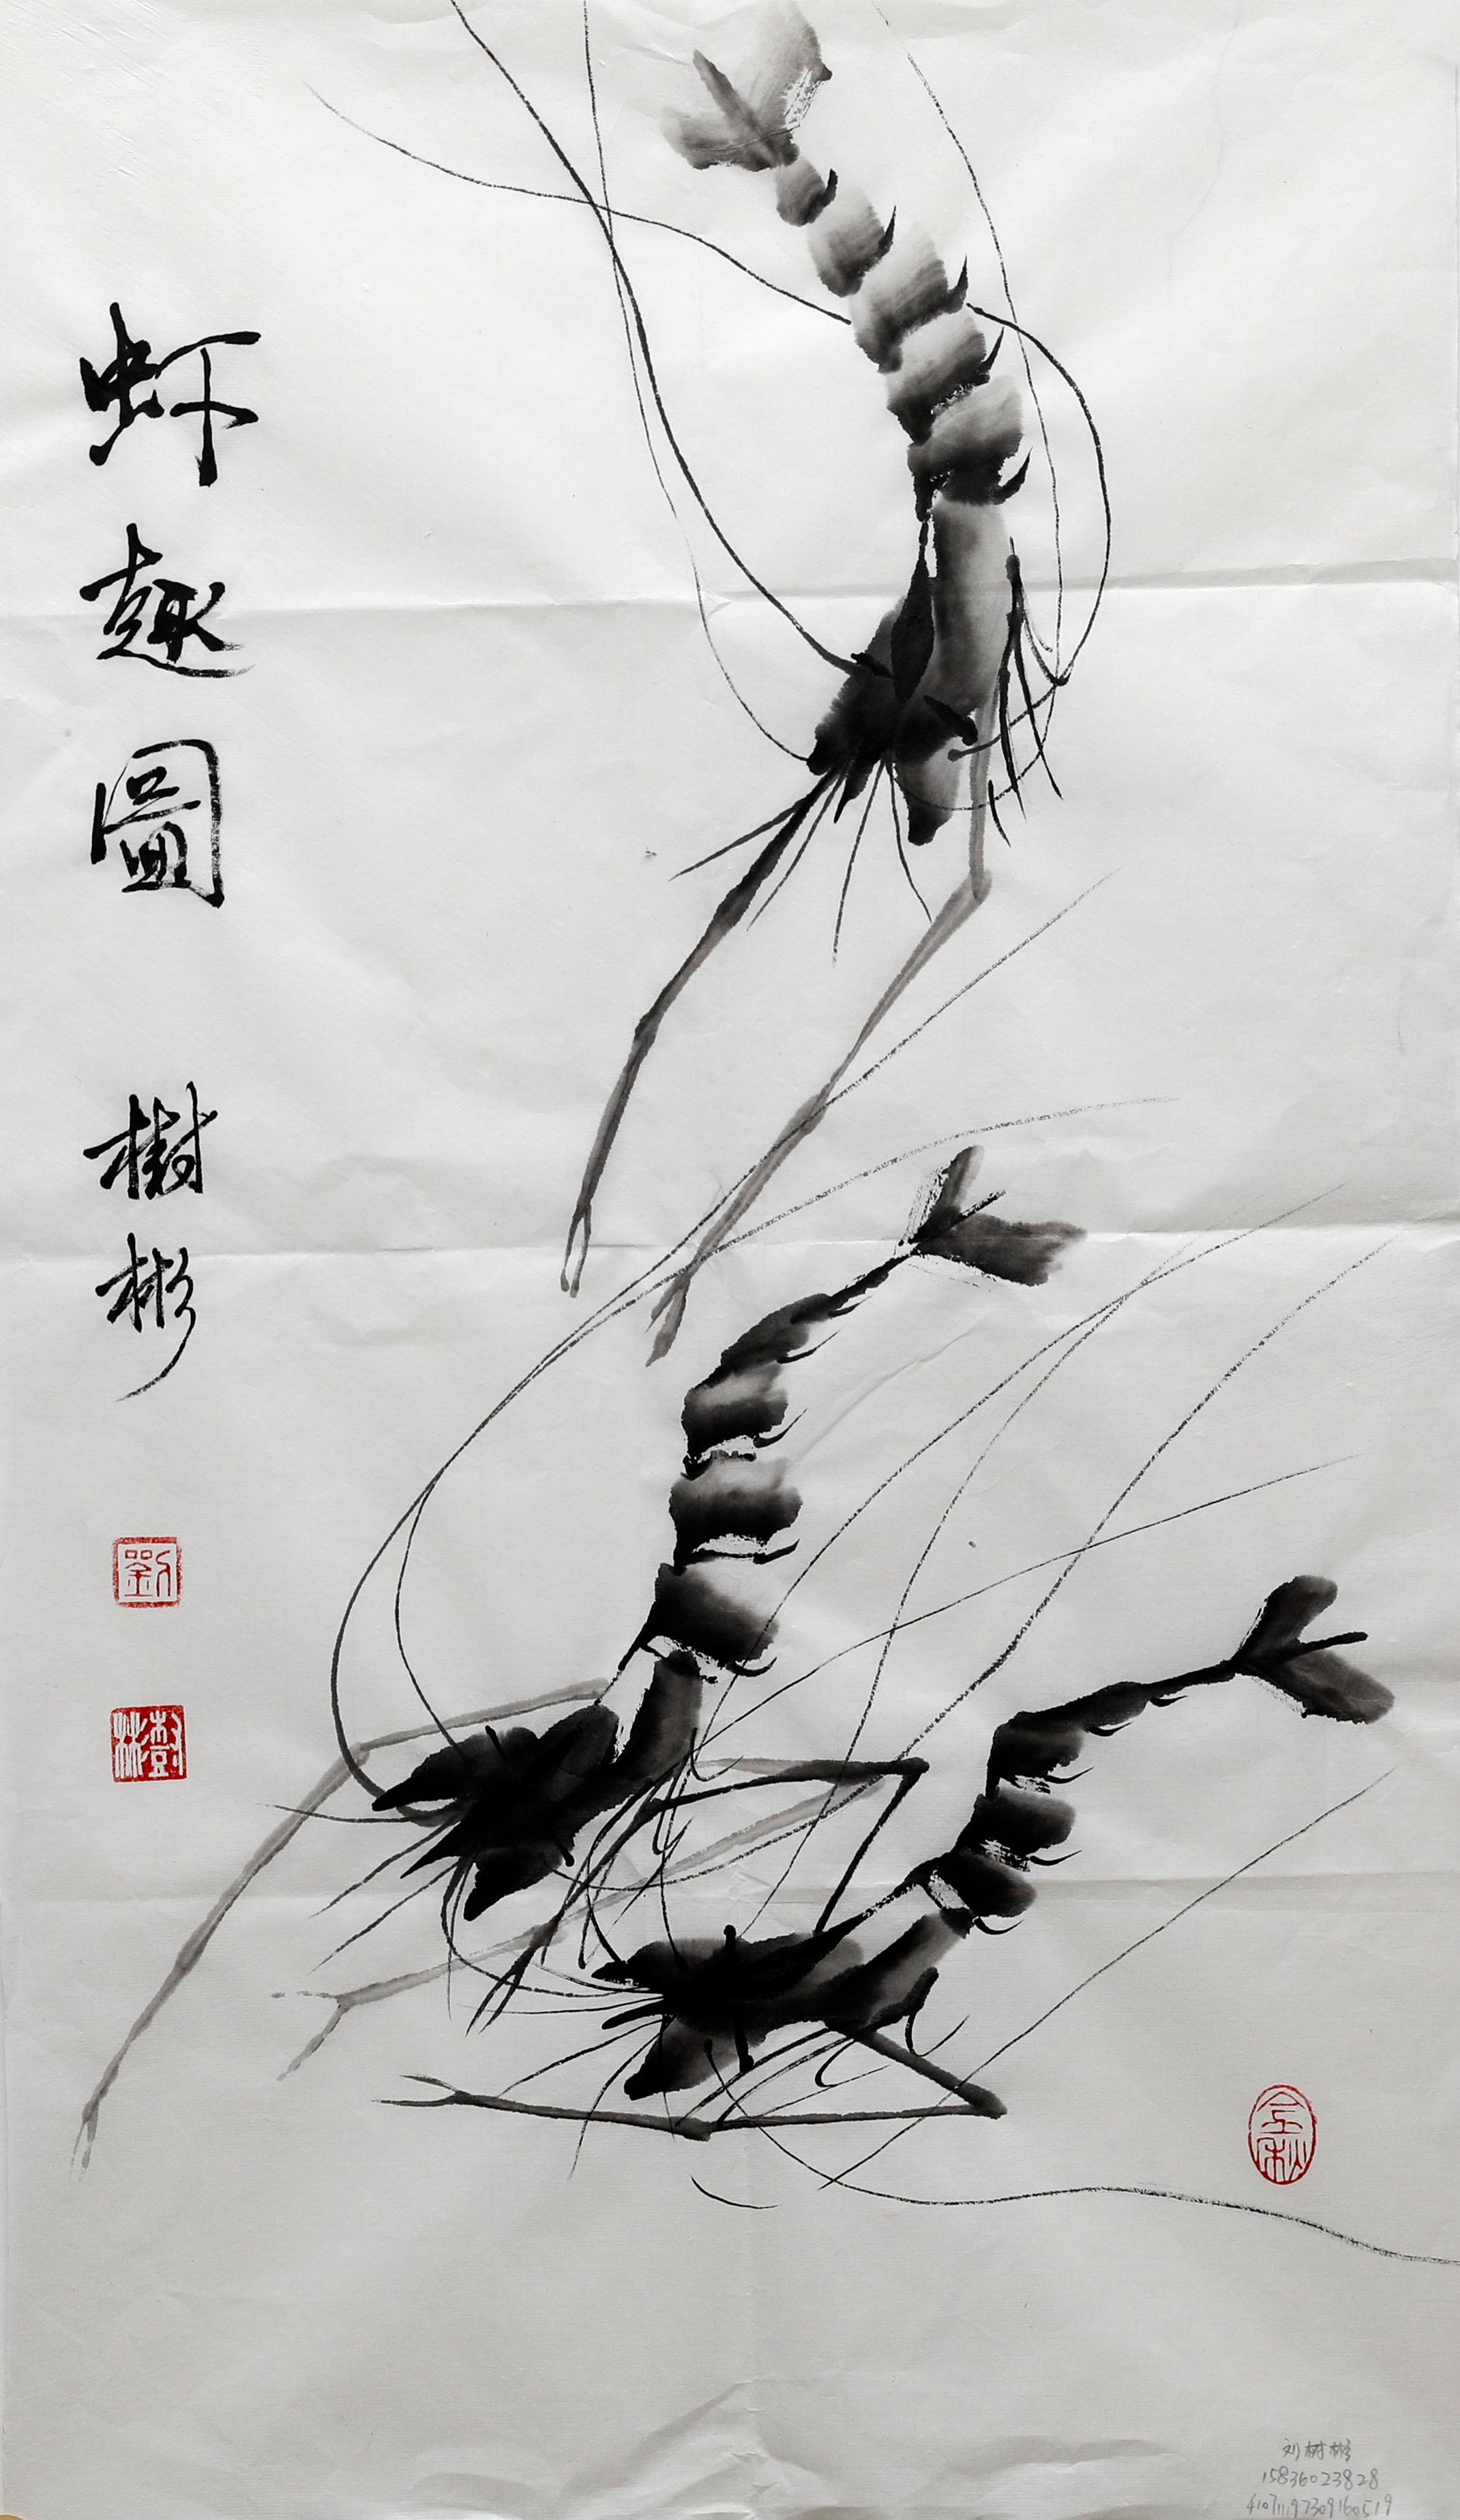 虾趣圖
樹彬
劉
樹彬
刘树彬
15836023828
410711197309160519